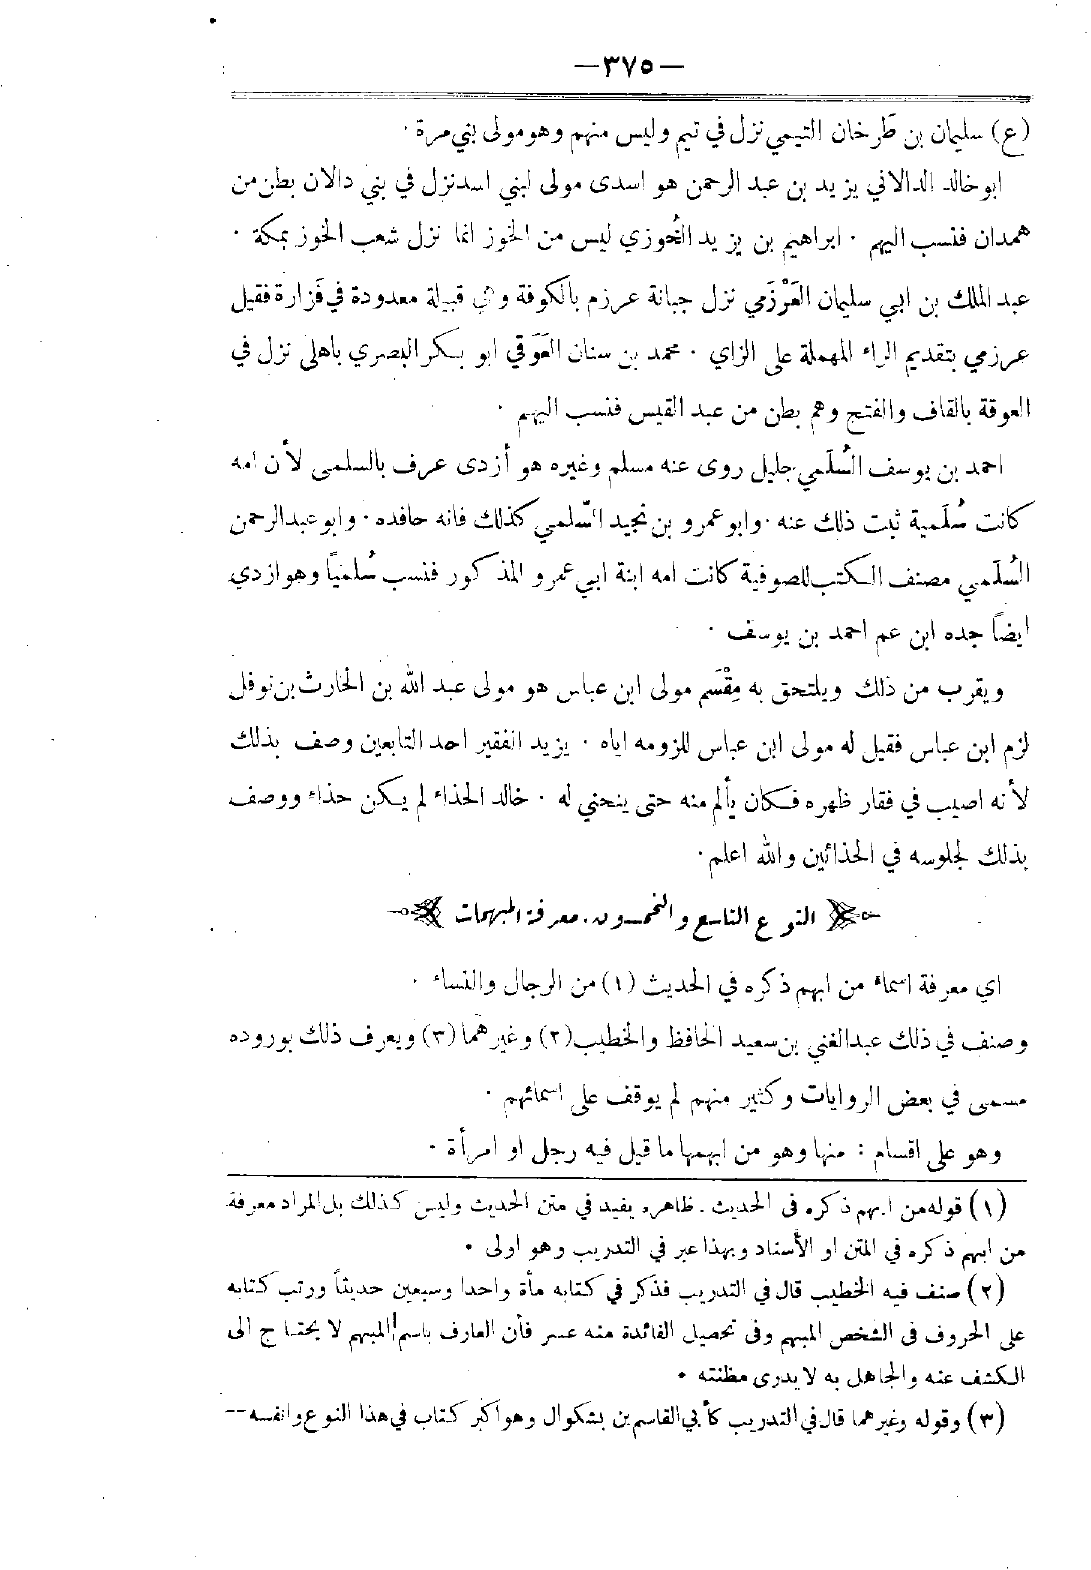 —٣٧٥—
(ع) سليمان بن طَرخان التيمي نزل في تيم وليس منهم وهو مولى بني مرة ·
ابو خالد الدالاني يزيد بن عبد الرحمن هو اسدى مولى لبني اسد نزل في بني دالان بطن من
همدان فنسب اليهم · ابراهيم بن يزيد الخُوزي ليس من الخوز انما نزل شعب الخوز بمكة ·
عبد الملك بن ابي سليمان العَرْزَمي نزل جبانة عرزم بالكوفة وهي قبيلة معدودة في فَزارة فقيل
عرزمي بتقديم الراء المهملة على الزاي · محمد بن سنان العَوَقي ابو بكر البصري باهلى نزل في
العوقة بالقاف والفتح وهم بطن من عبد القيس فنسب اليهم ·
احمد بن يوسف السُلَمي جليل روى عنه مسلم وغيره هو أزدى عرف بالسلمى لأن امه
كانت سُلَمية ثبت ذلك عنه · وابو عمرو بن نجيد السّلمي كذلك فانه حافده · وابو عبدالرحمن
السُلَمي مصنف الكتب للصوفية كانت امه ابنة ابي عمرو المذكور فنسب سُلمياً وهو ازدي
ايضاً جده ابن عم احمد بن يوسف ·
ويقرب من ذلك ويلتحق به مِقْسَم مولى ابن عباس هو مولى عبد الله بن الحارث بن نوفل
لزم ابن عباس فقيل له مولى ابن عباس للزومه اياه · يزيد الفقير احد التابعين وصف بذلك
لأنه اصيب في فقار ظهره فكان يألم منه حتى ينحني له · خالد الحذاء لم يكن حذاء ووصف
بذلك لجلوسه في الحذائين والله اعلم ·
النوع التاسع والخمسون. معرفة المبهمات
اي معرفة اسماء من ابهم ذكره في الحديث (١) من الرجال والنساء ·
وصنف في ذلك عبدالغني بن سعيد الحافظ والخطيب (٢) وغيرهما (٣) ويعرف ذلك بوروده
مسمى في بعض الروايات وكثير منهم لم يوقف على اسمائهم ·
وهو على اقسام : منها وهو من ابهمها ما قيل فيه رجل او امرأة ·
(١) قوله من ابهم ذكره فى الحديث . ظاهره يفيد في متن الحديث وليس كذلك بل المراد معرفة
من ابهم ذكره في المتن او الأسناد وبهذا عبر في التدريب وهو اولى ·
(٢) صنف فيه الخطيب قال في التدريب فذكر في كتابه مأة واحدا وسبعين حديثاً ورتب كتابه
على الحروف فى الشخص المبهم وفى تحصيل الفائدة منه عسر فأن العارف باسم المبهم لا يحتاج الى
الكشف عنه والجاهل به لا يدرى مظنته ·
(٣) وقوله وغيرهما قال في التدريب كأبي القاسم بن بشكوال وهو اكبر كتاب في هذا النوع وانفسه --